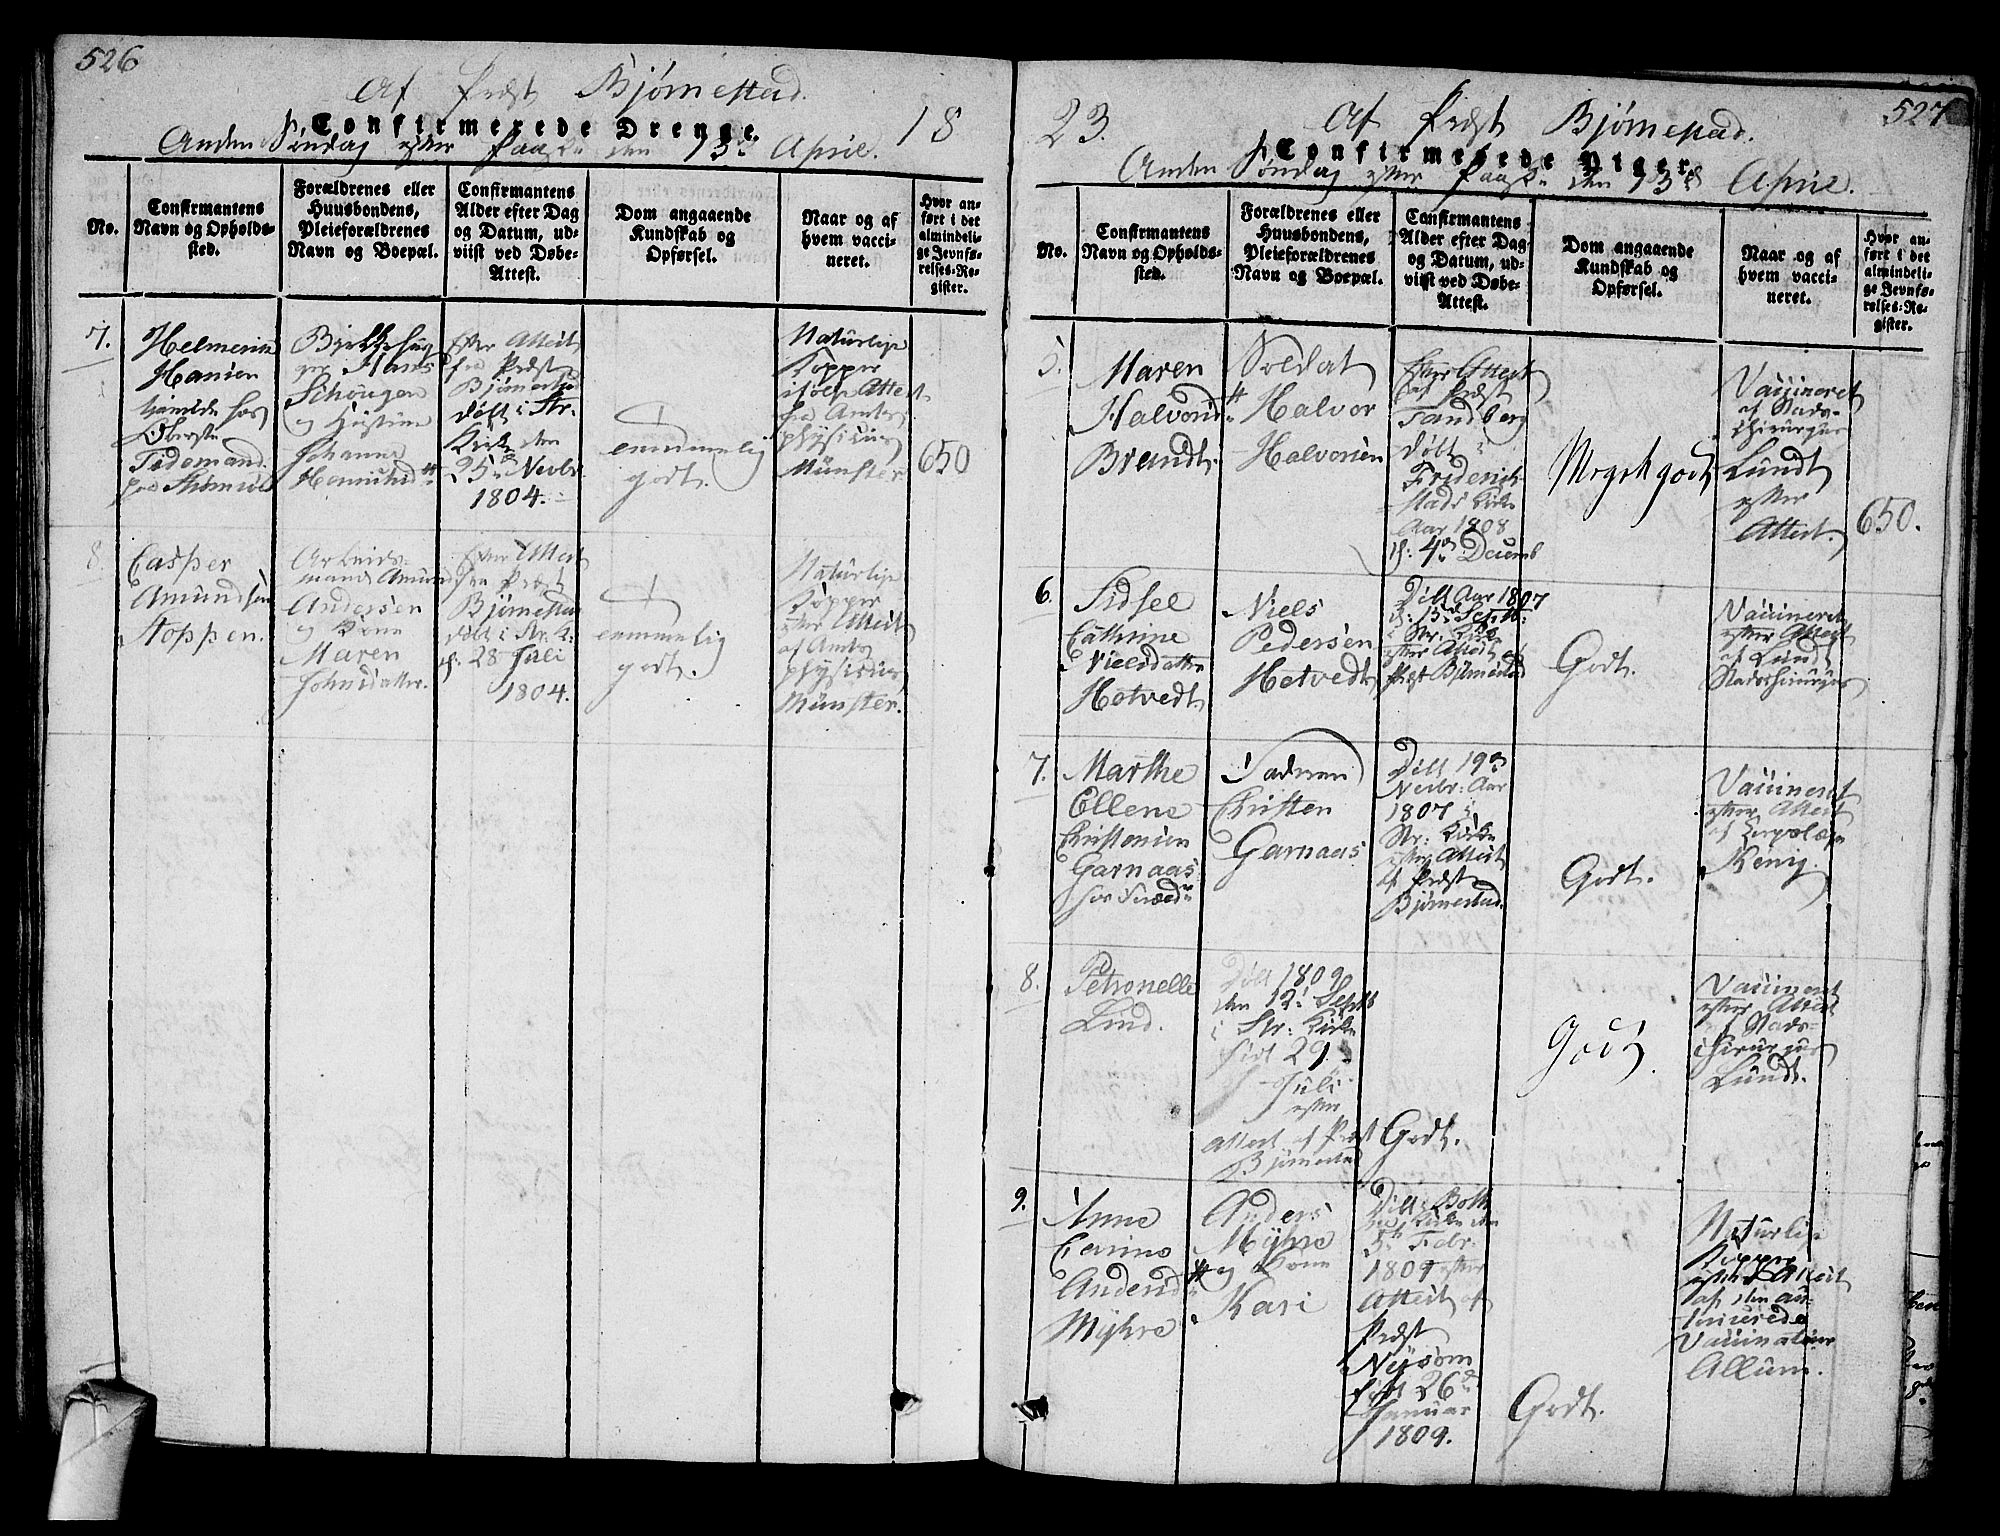 526
Af Præst Bjørnestad.
Confirmerede Drenge.
18
Anden Søndag efter Paaske den 13de April.
No.
Confirmantens
Navn og Opholds-
sted.
Forældrenes eller
Huusbondens,
Pleieforældrenes
Navn og Boepæl.
Confirmantens
Alder efter Dag
og Datum, ud-
viist ved Døbe-
Attest.
Dom angaaende
Kundskab og
Opførsel.
Naar og af
hvem vacci-
neret.
Hvor an-
ført i det
almindeli-
ge Jevnfø-
relses-Re-
gister.
7.
Helmerin
Hansen
hos
Oberste
Tidemand
paa
Hans
Schougen
og Hustrue
Johanne
Efter Attest
fra Præst
Bjørnestad
døbt i Str.
Kirke den
25de Novbr.
1804.
temmelig
godt.
Naturlige
Kopper
ifølge Attest
fra Amts
physicus
Münster
650
8.
Casper
Amundsen
Stoppen.
Arbeids-
mand Amund
Andersen
og Kone
Maren
Johnsdatter.
Efter Attest
fra Præst
Bjørnestad
døbt i Str. K.
d: 28 Juli
1804.
temmelig
godt.
Naturlige
Kopper
efter Attest
af Amts
physicus
Münster.
527
23.
Af Præst Bjørnestad.
Confirmerede Piger.
Anden Søndag efter Paaske den 13de April.
No.
Confirmantens
Navn og Opholds-
sted.
Forældrenes eller
Huusbondens,
Pleieforældrenes
Navn og Boepæl.
Confirmantens
Alder efter Dag
og Datum, ud-
viist ved Døbe-
Attest.
Dom angaaende
Kundskab og
Opførsel.
Naar og af
hvem vacci-
neret.
Hvor an-
ført i det
almindeli-
ge Jevnfø-
relses-Re-
gister.
5.
Maren
Halvorsd
Brandt.
Soldat
Halvor
Halvorsen
Efter Attest
af Præst
Tandberg
døbt i
Friderich-
stads Kirke
Aar 1808
d: 4de Decemb
Meget godt
Vaccineret
af Stads-
chirurgus
Lundt
efter
Attest.
650.
6.
Sidsel
Cathrine
Nielsdatter
Hotvedt
Niels
Pedersen
Hotvedt
Døbt Aar 1807
d: 13de Septb:
i Str: Kirke
efter Attest af
Præst Bjørnestad
Godt.
Vaccineret
efter Attest
af Lundt
Stadschirurgus
7.
Marthe
Ellene
Christensen
Garnaas
hos
Christen
Garnaas
Døbt 19de
Novbr: Aar
1807 i
Str: Kirke
efter Attest
af Præst
Bjørnestad.
Godt.
Vaccineret
efter Attest
af
Kenig.
8.
Petronelle
Lind.
Døbt 1809
den 12. Septb
i Str: Kirke
født 29
Juli
efter
Attest af Præst
Bjørnestad
Godt.
Godt
Vaccineret
efter Attest
af Stads-
chirurgus
Lundt.
9.
Anne
Andersd
Myhre
Anders
Myhre
og Kone
Kari
Døbt i Both
ne Kirke den
5te Febr.
1809 efter
Attest af
Præst
Nysom
født 26de
Januar
1809.
Godt.
Naturlige
Kopper
efter Attest
af den au-
toriserede
Vaccinatør
Allum.